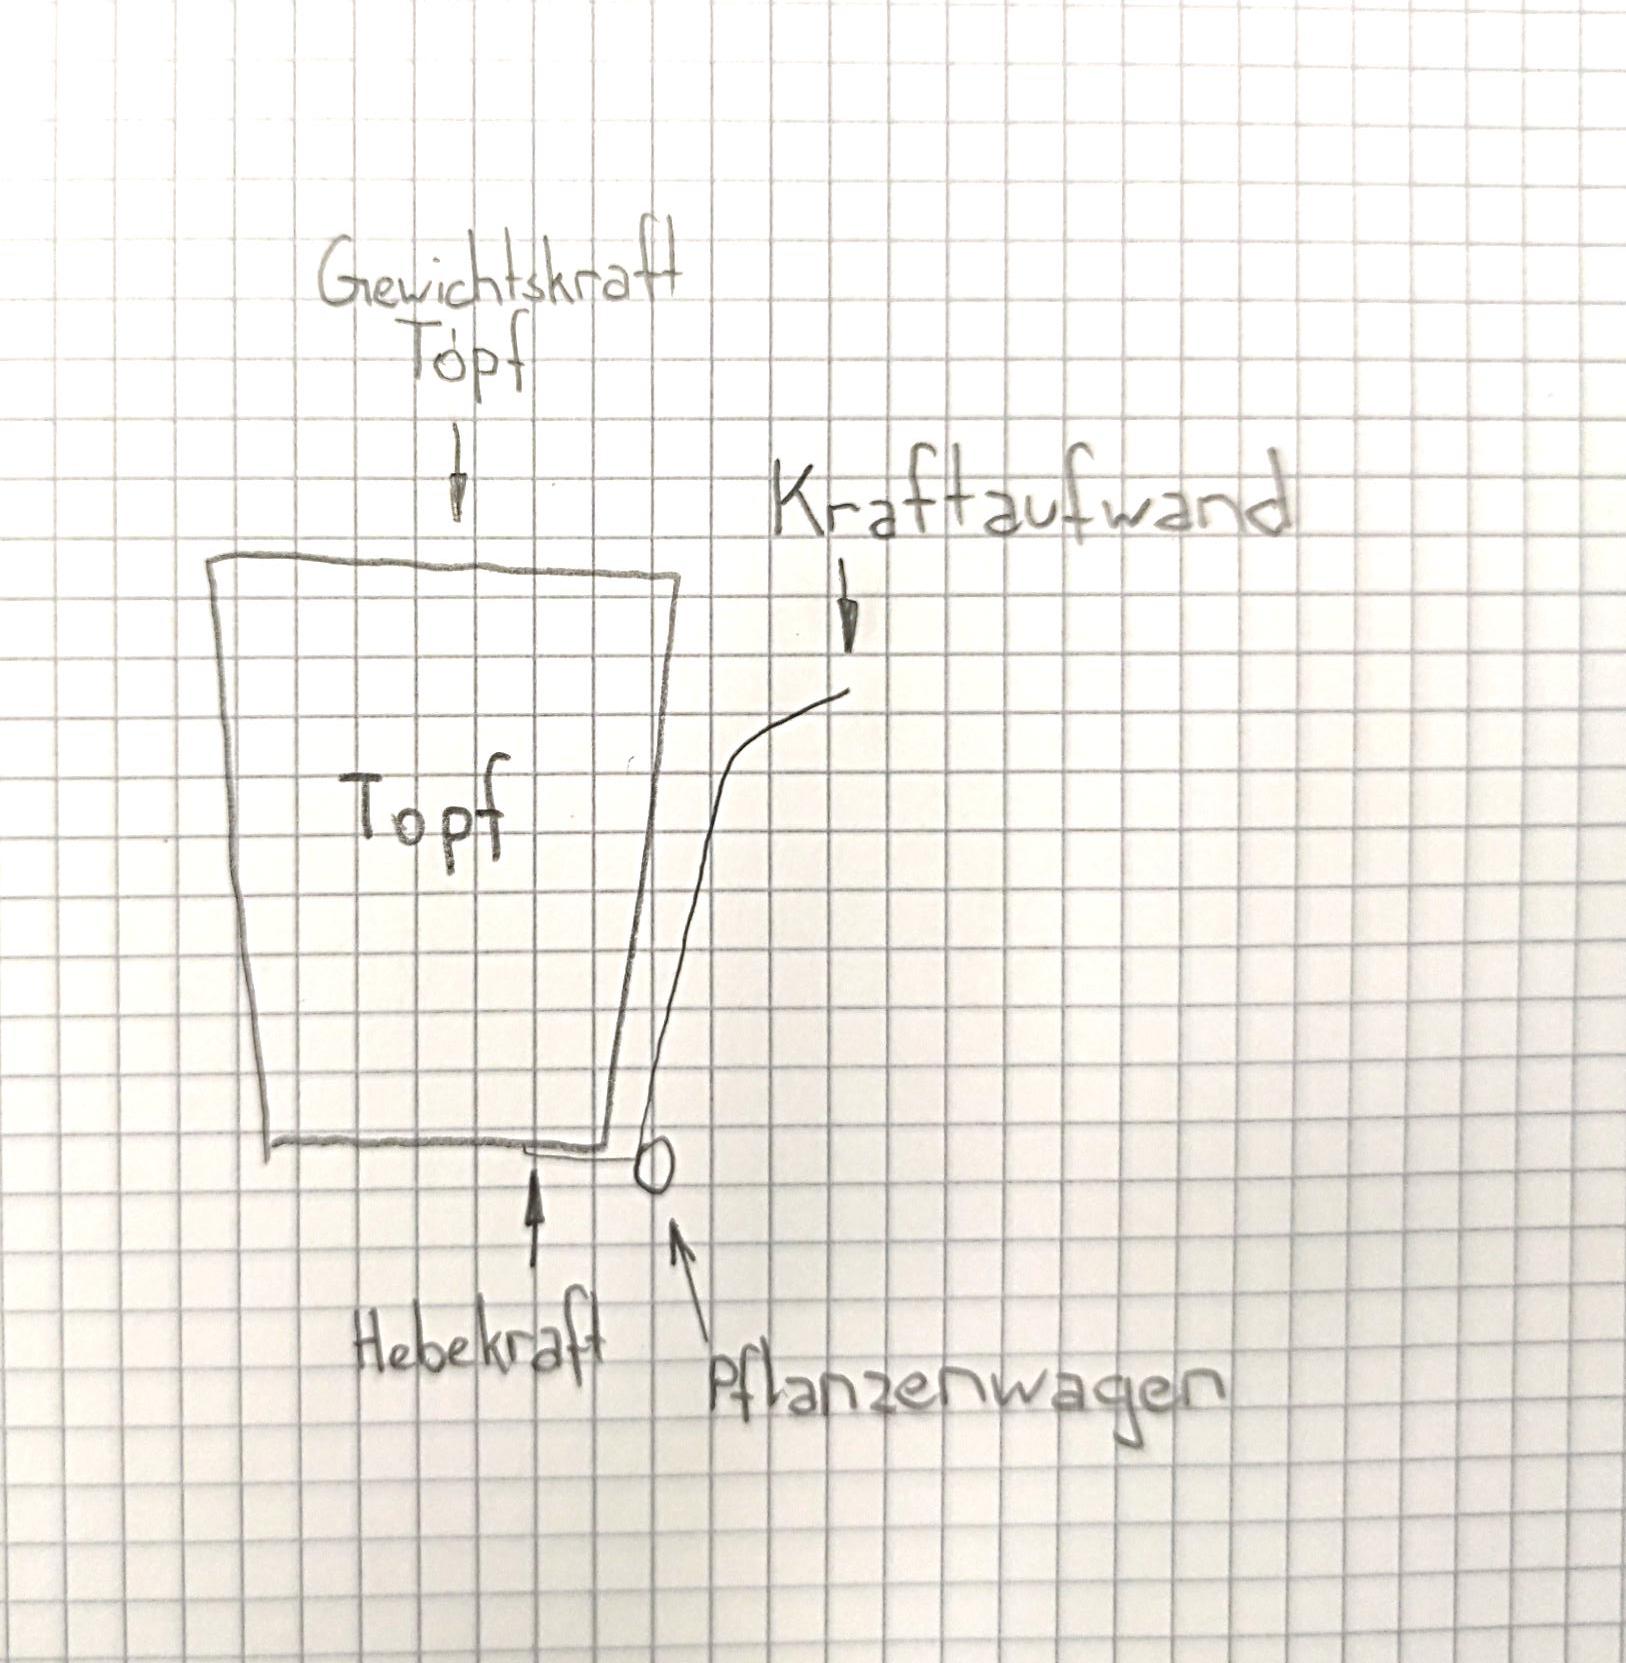 Gewichtskraft
Topf
Kraftaufwand
Topf
Hebekraft
Pflanzenwagen